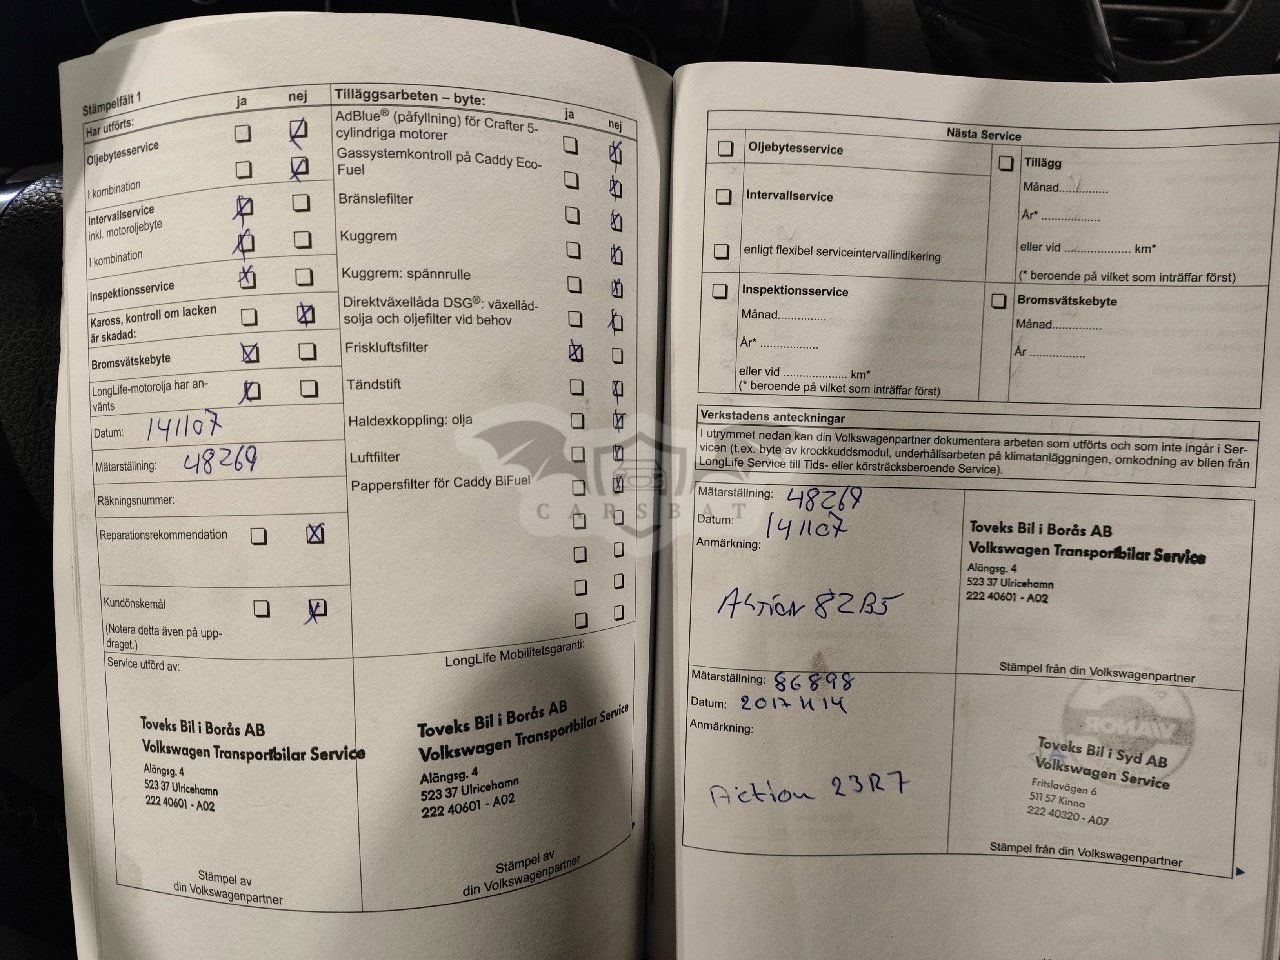 Stämpelfält 1
Har utförts:
ja
nej
Oljebytesservice
I kombination
Intervallservice
inkl. motoroljebyte
I kombination
Inspektionsservice
Kaross, kontroll om lacken
är skadad:
Bromsvätskebyte
LongLife-motorolja har an-
vänts
Datum: 141107
Mätarställning: 48269
Räkningsnummer:
Reparationsrekommendation
Kundönskemål
(Notera detta även på upp-
draget.)
Service utförd av:
Toveks Bil i Borås AB
Volkswagen Transportbilar Service
Alängsg. 4
523 37 Ulricehamn
222 40601 - A02
Stämpel av
din Volkswagenpartner
Tilläggsarbeten – byte:
ja
nej
AdBlue® (påfyllning) för Crafter 5-
cylindriga motorer
Gassystemkontroll på Caddy Eco-
Fuel
Bränslefilter
Kuggrem
Kuggrem: spännrulle
Direktväxellåda DSG®: växellåd-
solja och oljefilter vid behov
Friskluftsfilter
Tändstift
Haldexkoppling: olja
Luftfilter
Pappersfilter för Caddy BiFuel
LongLife Mobilitetsgaranti:
Toveks Bil i Borås AB
Volkswagen Transportbilar Service
Alängsg. 4
523 37 Ulricehamn
222 40601 - A02
Stämpel av
din Volkswagenpartner
CARSBAT
Nästa Service
Oljebytesservice
Intervallservice
enligt flexibel serviceintervallindikering
Inspektionsservice
Månad..............
År* ..................
eller vid .................... km*
(* beroende på vilket som inträffar först)
Tillägg
Månad..............
År* ..................
eller vid .................... km*
(* beroende på vilket som inträffar först)
Bromsvätskebyte
Månad..............
År .................
Verkstadens anteckningar
I utrymmet nedan kan din Volkswagenpartner dokumentera arbeten som utförts och som inte ingår i Ser-
vicen (t.ex. byte av krockkuddsmodul, underhållsarbeten på klimatanläggningen, omkodning av bilen från
LongLife Service till Tids- eller körsträcksberoende Service).
Mätarställning: 48269
Datum: 141107
Anmärkning:
Action 82B5
Toveks Bil i Borås AB
Volkswagen Transportbilar Service
Alängsg. 4
523 37 Ulricehamn
222 40601 - A02
Stämpel från din Volkswagenpartner
Mätarställning: 86898
Datum: 20171114
Anmärkning:
Action 23R7
Toveks Bil i Syd AB
Volkswagen Service
Fritslavägen 6
511 57 Kinna
222 40320 - A07
Stämpel från din Volkswagenpartner